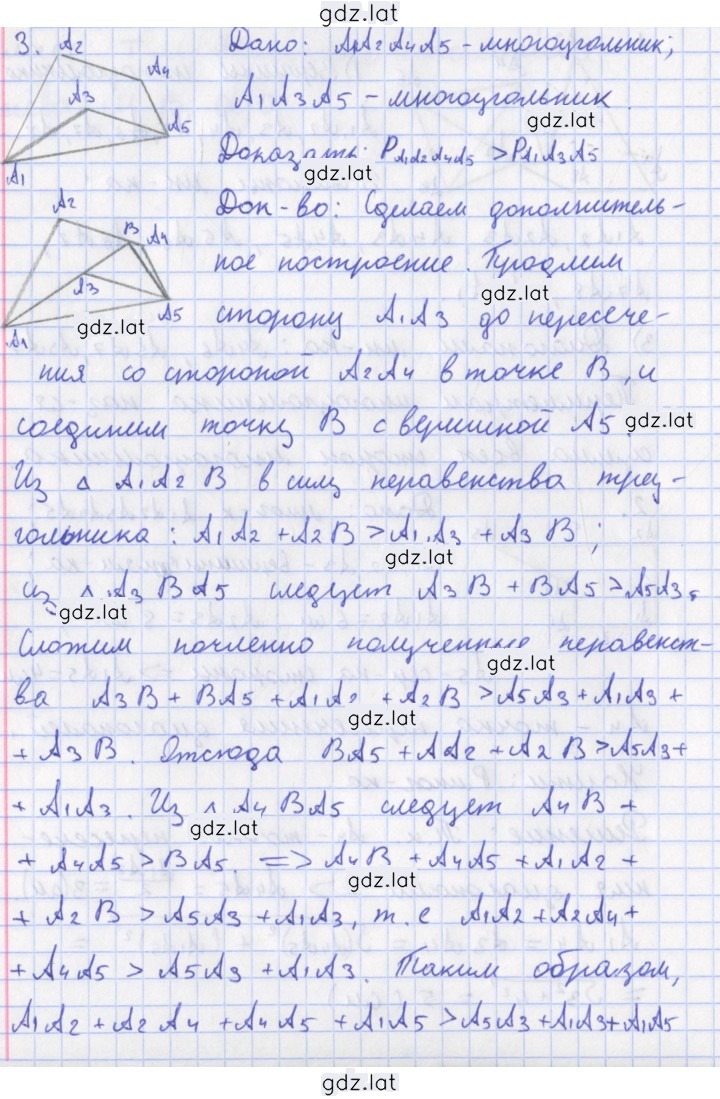 gdz.lat
3. A2 Дано: A1A2A4A5 - многоугольник;
A4
A3 A1A3A5 - многоугольник.
gdz.lat
A5 Доказать: PA1A2A4A5 > PA1A3A5
gdz.lat
A1
A2 Док-во: Сделаем дополнитель-
B A4
ное построение. Продлим
A3
gdz.lat
A5 сторону A1A3 до пересече-
gdz.lat
A1
ния со стороной A2A4 в точке B, и
соединим точку B с вершиной A5.
gdz.lat
Из △ A1A2B в силу неравенства треу-
гольника: A1A2 + A2B > A1A3 + A3B;
gdz.lat
из △ A3BA5 следует A3B + BA5 > A5A3.
gdz.lat
Сложим почленно полученные неравенст-
gdz.lat
ва A3B + BA5 + A1A2 + A2B > A5A3 + A1A3 +
gdz.lat
+ A3B. Отсюда BA5 + A1A2 + A2B > A5A3 +
+ A1A3. Из △ A4BA5 следует A4B +
gdz.lat
+ A4A5 > BA5. => A4B + A4A5 + A1A2 +
gdz.lat
+ A2B > A5A3 + A1A3, т.е A1A2 + A2A4 +
+ A4A5 > A5A3 + A1A3. Таким образом,
A1A2 + A2A4 + A4A5 + A1A5 > A5A3 + A1A3 + A1A5
gdz.lat